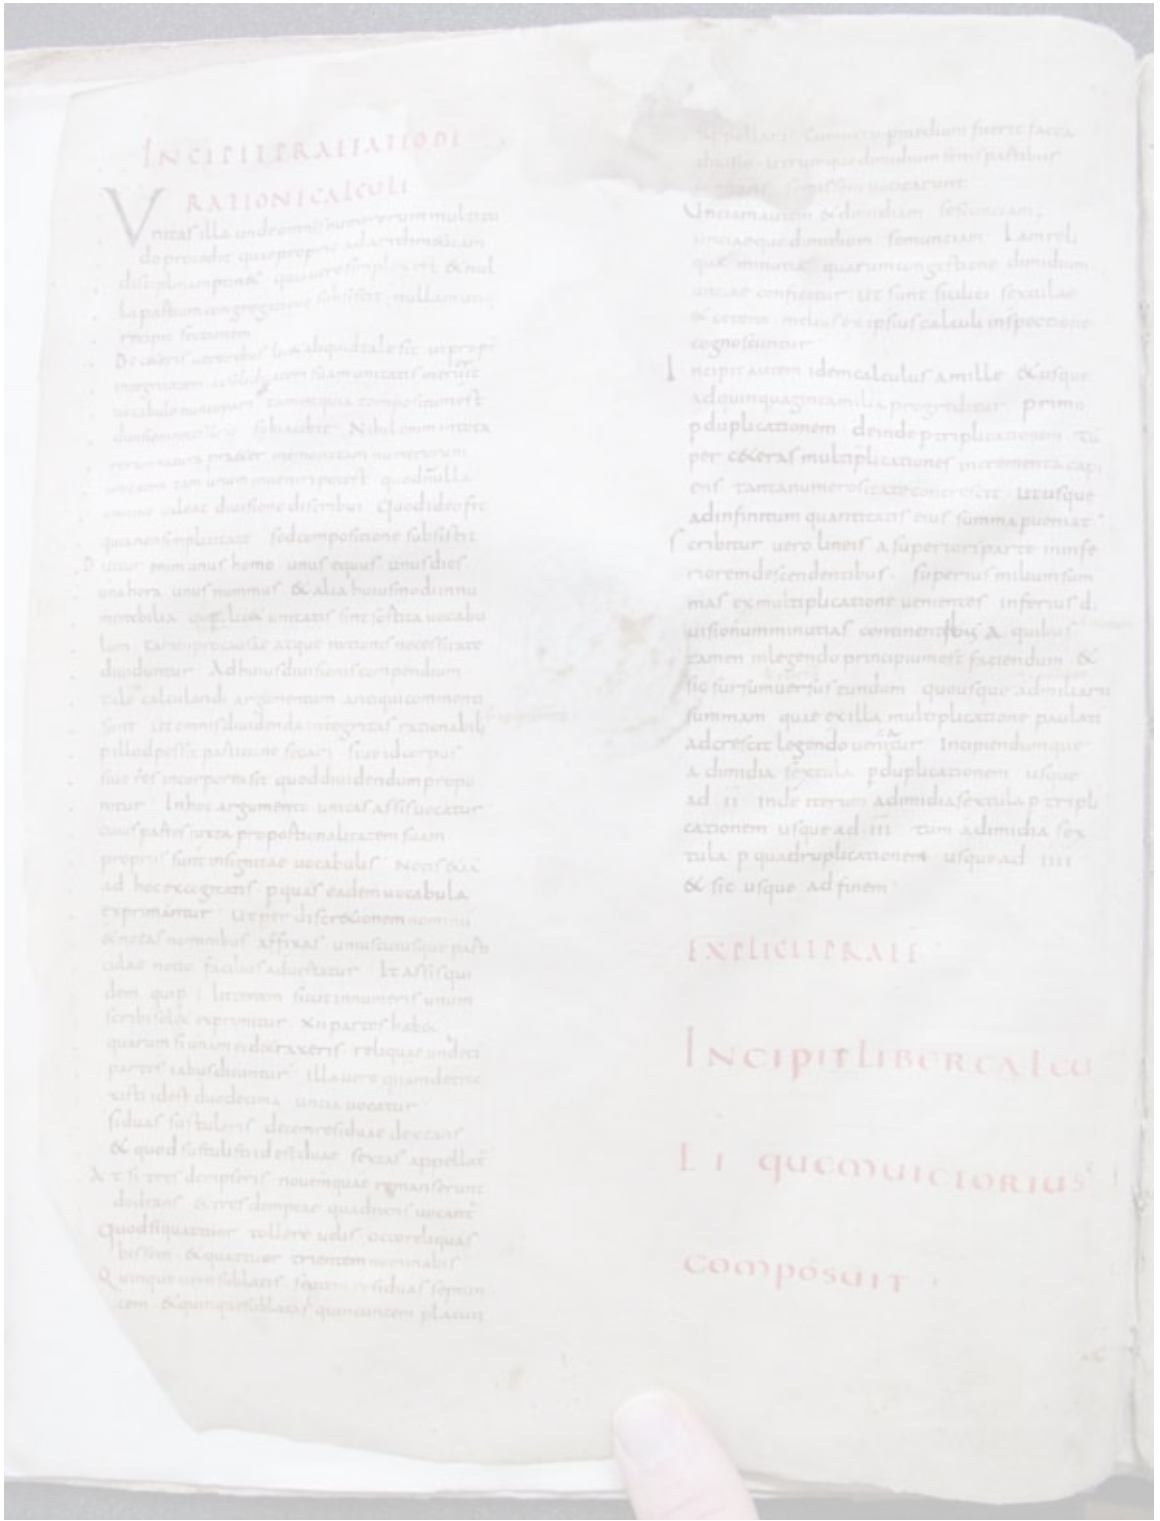 INCIPIT PRAEFATIO DE
RATIONE CALCULI
Vnitas illa unde omnis numerorum multitu
do procedit que proprie ad arithmeticam
disciplinam quia uere simplex est & nul
la partium congregatione subsistit nullam utiq
recipit sectionem
De ceteris uero rebus lic& aliquid tale sit ut propt
integritatem uocabulo nuncupari tamen quia compositum est
diuisioni subiacebit Nihil enim in tota
rerum natura praeter memoratam numerorum
unitatem tam unum inueniri potest quod nulla
omnino ualeat diuisione distribui Quod ideo fit
quia non simplicitate sed compositione subsistit
Dicitur enim unus homo unus equus unus dies
una hora unus nummus & alia huiusmodi innu
merabilia que lic& unitatis sint sortita uocabu
lum tamen pro causae atque rationis necessitate
diuiduntur Ad huius diuisionis compendium
tale calculandi argumentum antiqui commenti
sunt ut omnis diuidenda integritas rationabili
p illud possit partitione secari siue id corpus
siue res incorporea sit quod diuidendum propo
nitur In hoc argumento unitas assis uocatur
cuius partes iuxta proportionalitatem suam
propriis sunt insignitae uocabulis Notis &iā
ad hoc excogitatis p quas eadem uocabula
exprimantur Ut per discr&ionem nominū
& notas nominibus affixas unius cuiusque parti
culae notio facilius aduertatur It assis qui
dem quip i litteram sicut in numeris unum
scribi sol& exprimitur XII partes hab&
quarum si unam ei detraxeris reliquae undeci
partes iabus dicuntur Illa uero quam detra
xisti id est duodecima uncia uocatur
si duas sustuleris decem residuae dextans
& quod sustulisti id est duae sextas appellat
At si tres dempseris nouemque remanserunt
dodrans & tres demptae quadrans uocant
Quod si quattuor tollere uelis octo reliquas
bissem & quattuor trientem nominabis
Quinque uero sublatis septem residuas septun
cem & quinque sublatas quincuncem placuit
appellari Cum uero p medium fuerit facta
diuisio utrumque dimidium senis partibus
semissem uocitarunt
Unciam autem & dimidiam sescunciam
unciaeque dimidium semunciam Iam reli
que minutiae quarum congestione dimidium
unciae conficitur ut sunt sicilici sextulae
& cetera melius ex ipsius calculi inspectione
cognoscuntur
Incipit autem idem calculus a mille & usque
ad quinquaginta milia progreditur primo
p duplicationem deinde p triplicationem tū
per c&eras multiplicationes incrementa capi
ens tanta numerositate concrescit ut usque
ad infinitum quantitatis eius summa pueniat
Scribitur uero lineis a superiori parte in infe
riorem descendentibus superius milium sum
mas ex multiplicatione uenientes inferius di
uisionum minutias continentibus A quibus
tamen in legendo principium est faciendum &
sic sursum uersus eundum quousque ad miliariū
summam quae ex illa multiplicatione paulati
adcrescit legendo ueniatur Incipiendumque
a dimidia sextula p duplicationem usque
ad II Inde iterum a dimidia sextula p tripli
cationem usque ad III tum a dimidia sex
tula p quadruplicationem usque ad IIII
& sic usque ad finem
EXPLICIT PRAEF
INCIPIT LIBER CALCU
LI QUEM UICTORIUS
COMPOSUIT